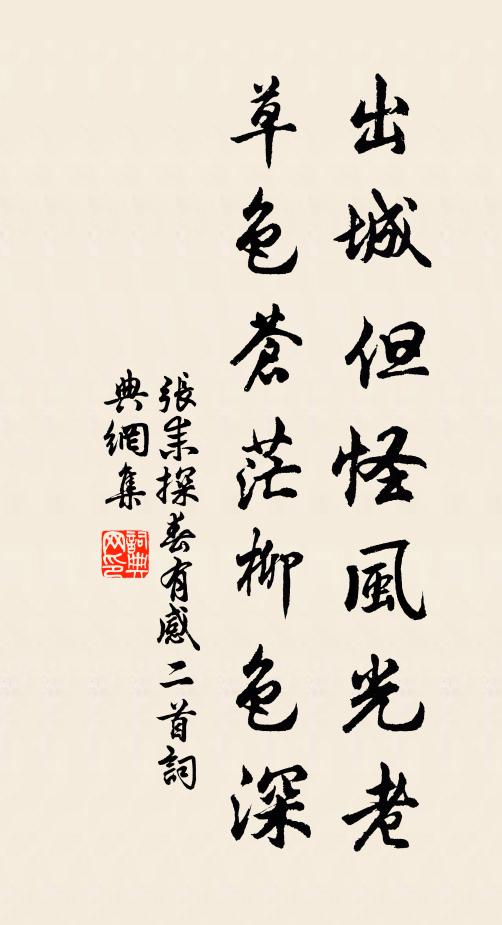 出城但怪風光老
草色蒼茫柳色深
張耒探春有感二首詞
典網集
詞典
网印